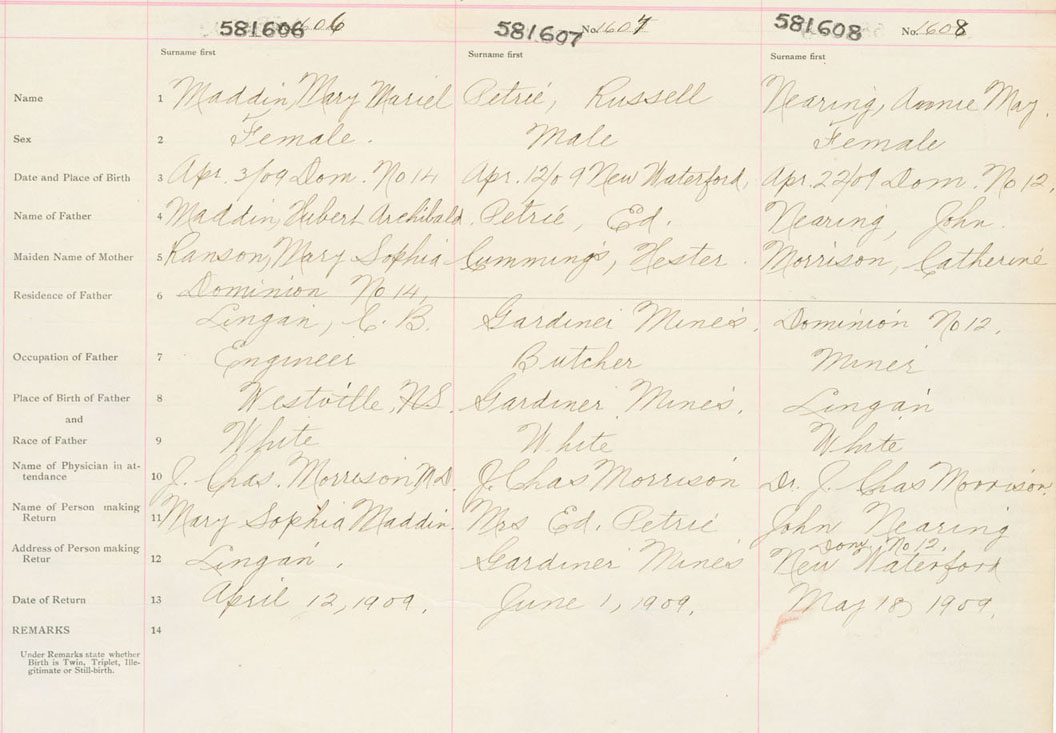 581606 1606 581607 No. 1607 581608 No. 1608
Surname first Surname first Surname first
Name 1 Maddin, Mary Mariel Petrie, Russell Nearing, Annie May.
Sex 2 Female. Male Female
Date and Place of Birth 3 Apr. 3/09 Dom. No 14 Apr. 12/09 New Waterford, Apr. 22/09 Dom. No 12.
Name of Father 4 Maddin, Hubert Archibald. Petrie, Ed. Nearing, John.
Maiden Name of Mother 5 Ranson, Mary Sophia Cummings, Hester. Morrison, Catherine
Residence of Father 6 Dominion No 14,
Lingan, C. B. Gardiner Mines, Dominion No 12.
Occupation of Father 7 Engineer Butcher Miner
Place of Birth of Father 8 Westville, N.S. Gardiner Mines, Lingan
and
Race of Father 9 White White White
Name of Physician in at-
tendance 10 J. Chas. Morrison, M.D. J. Chas Morrison Dr. J. Chas Morrison.
Name of Person making
Return 11 Mary Sophia Maddin. Mrs Ed. Petrie John Nearing
Address of Person making Dom. No 12.
Retur 12 Lingan. Gardiner Mines New Waterford
Date of Return 13 April 12, 1909. June 1, 1909. May 18, 1909.
REMARKS 14
Under Remarks state whether
Birth is Twin, Triplet, Ille-
gitimate or Still-birth.